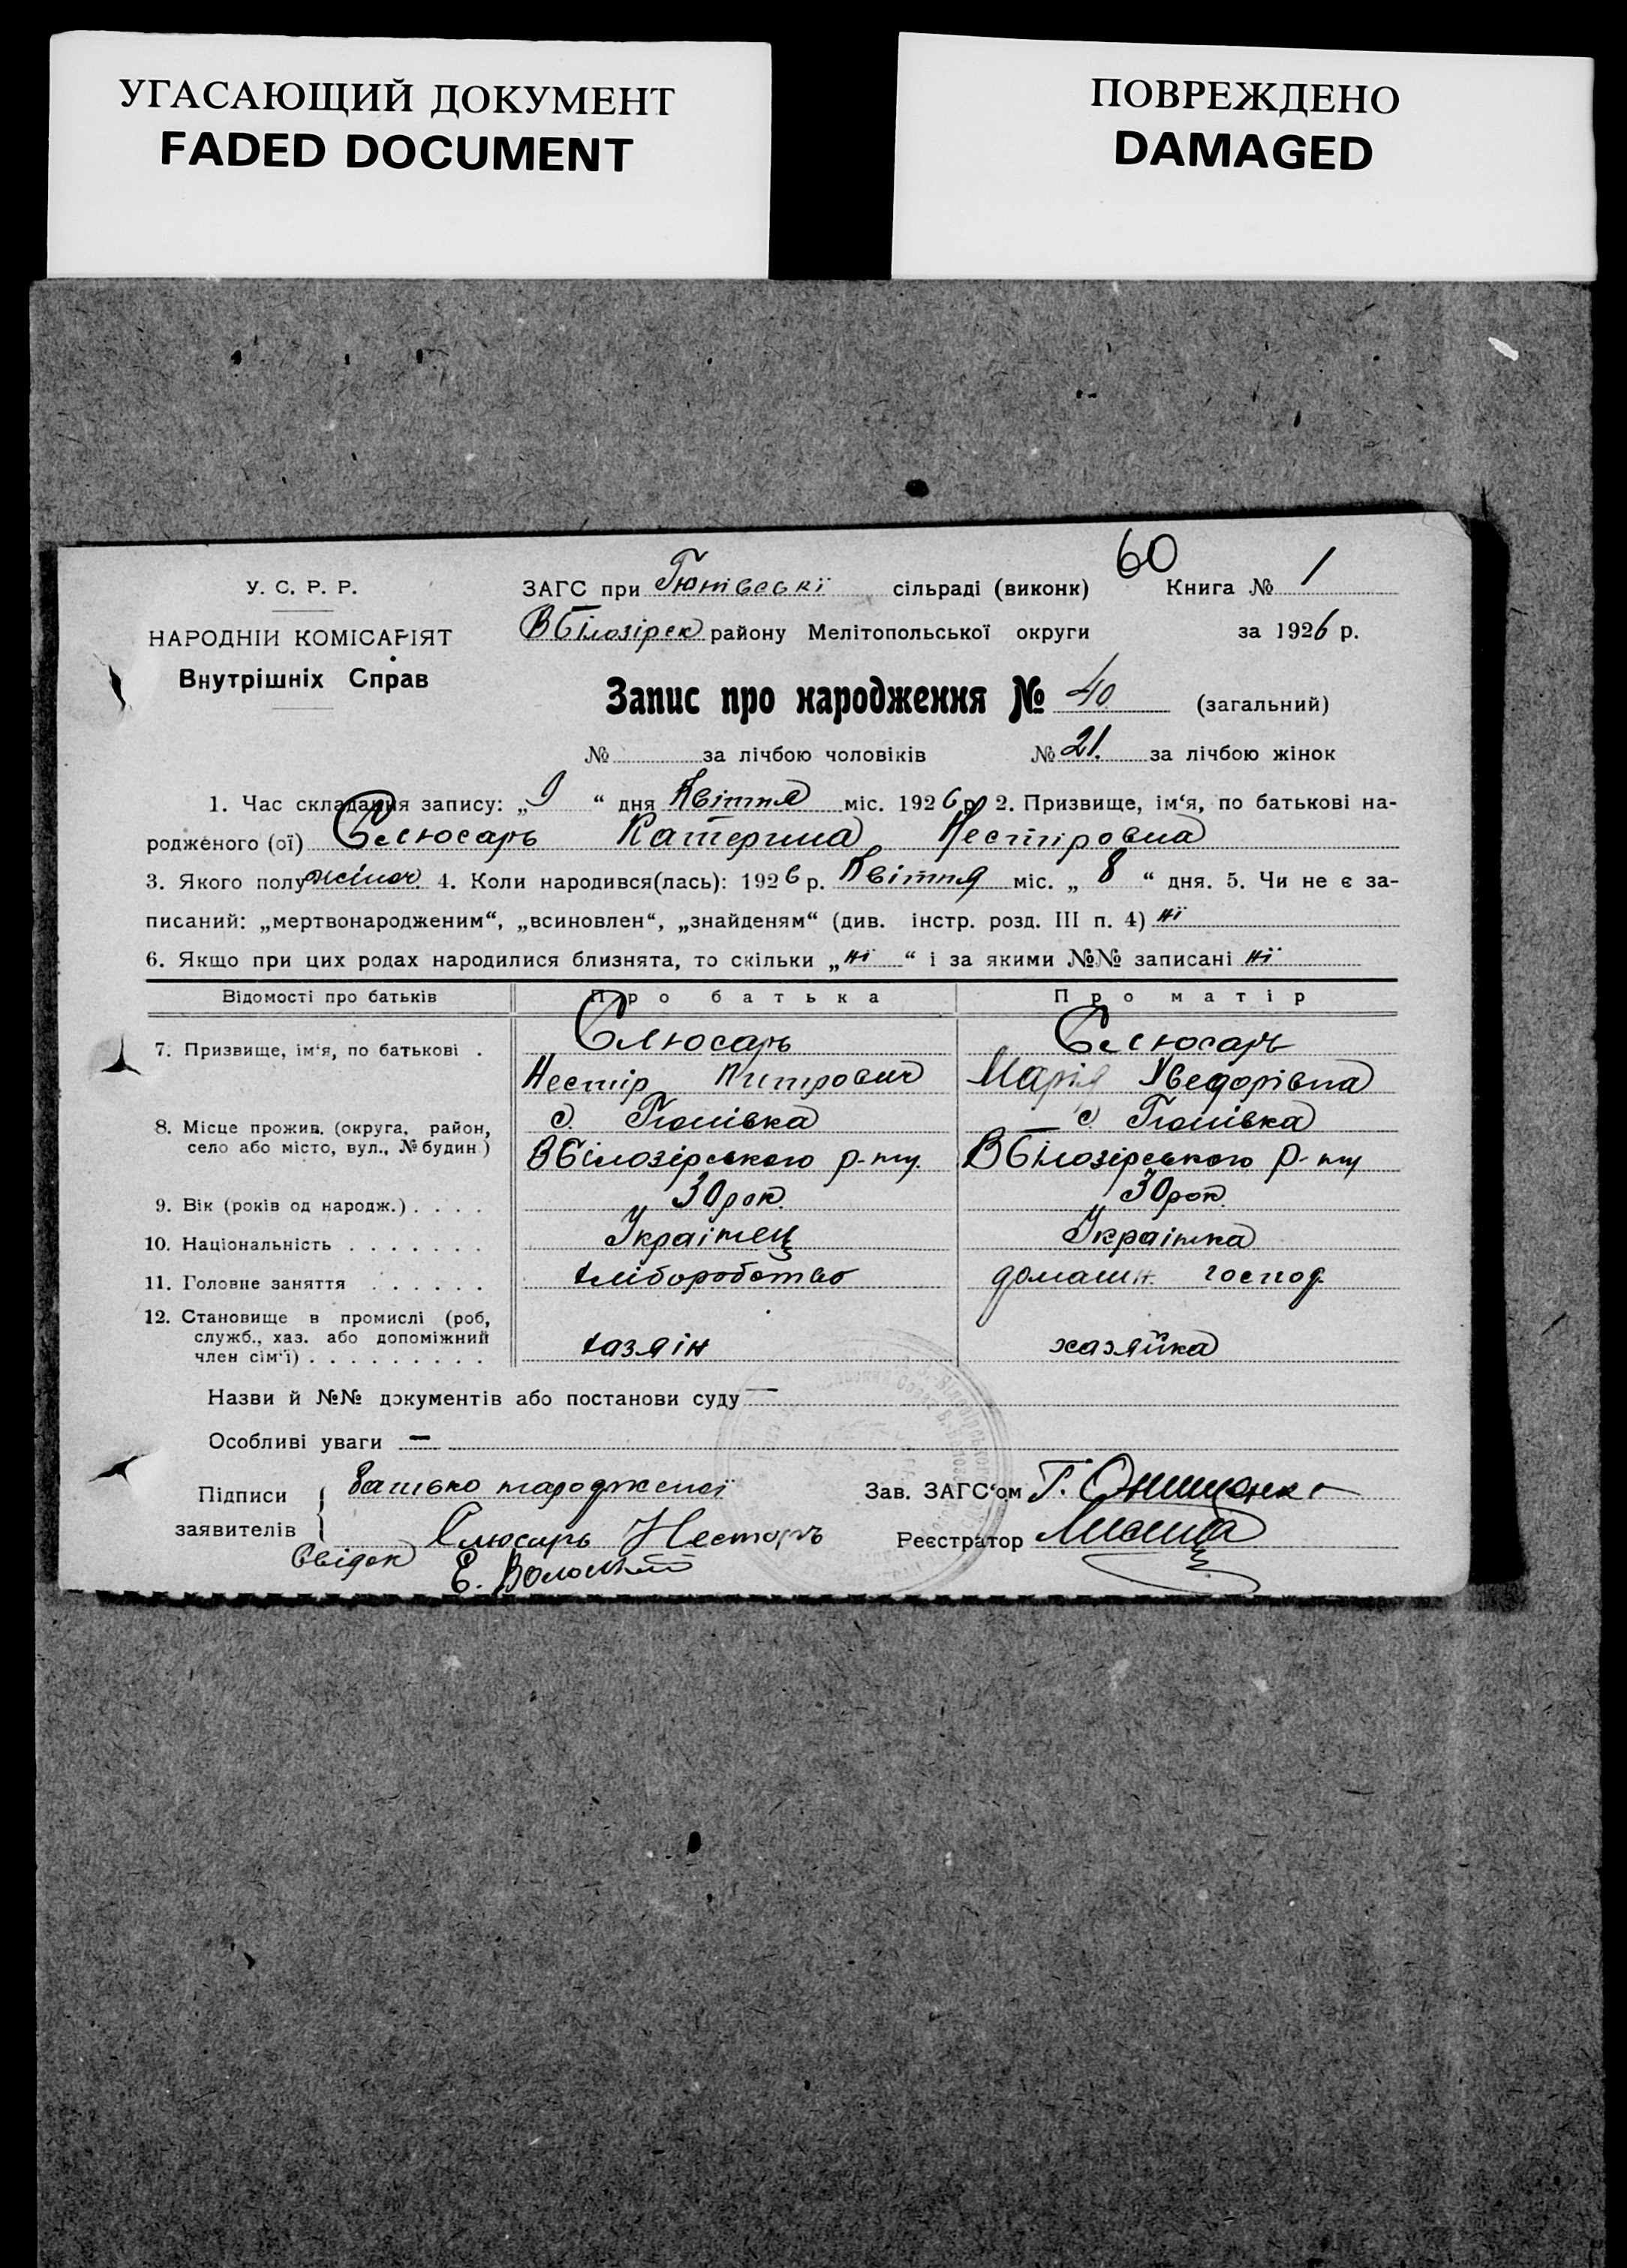 УГАСАЮЩИЙ ДОКУМЕНТ
FADED DOCUMENT
ПОВРЕЖДЕНО
DAMAGED
60
У. С. Р. Р.
НАРОДНІЙ КОМІСАРІЯТ
Внутрішніх Справ
ЗАГС при Гюнівській сільраді (виконк) Книга № 1
ВБілозірск району Мелітопольської округи за 1926 р.
Запис про народження № 40 (загальний)
№ за лічбою чоловіків № 21. за лічбою жінок
1. Час складання запису: „9“ дня Квітня міс. 1926 р. 2. Призвище, ім‘я, по батькові на-
родженого (ої) Слюсарь Катерина Нестіровна
3. Якого полу жіноч. 4. Коли народився(лась): 1926 р. Квітня міс. „8“ дня. 5. Чи не є за-
писаний: „мертвонародженим“, „всиновлен“, „знайденям“ (див. інстр. розд. III п. 4) ні
6. Якщо при цих родах народилися близнята, то скільки „ні“ і за якими №№ записані ні
Відомості про батьків Про батька Про матір
7. Призвище, ім‘я, по батькові . Слюсарь Слюсарь
Нестір Митрович Марія Хведорівна
8. Місце прожив. (округа, район, село або місто, вул., № будин.) с. Гюнівка с. Гюнівка
ВБілозірського р-ну. ВБілозірського р-ну
9. Вік (років од народж.) . . . . 30 рок. 30 рок.
10. Національність . . . . . . . Українец Українка
11. Головне заняття . . . . . . хліборобство домашн. господ.
12. Становище в промислі (роб, служб., хаз. або допоміжний член сім‘ї) . . . . . . . . . хазяін хазяйка
Назви й №№ документів або постанови суду —
Особливі уваги —
Підписи заявителів { Батько народженої
Слюсарь Несторъ
Свідок Е.
Зав. ЗАГС‘ом Г. Онищенко
Реєстратор